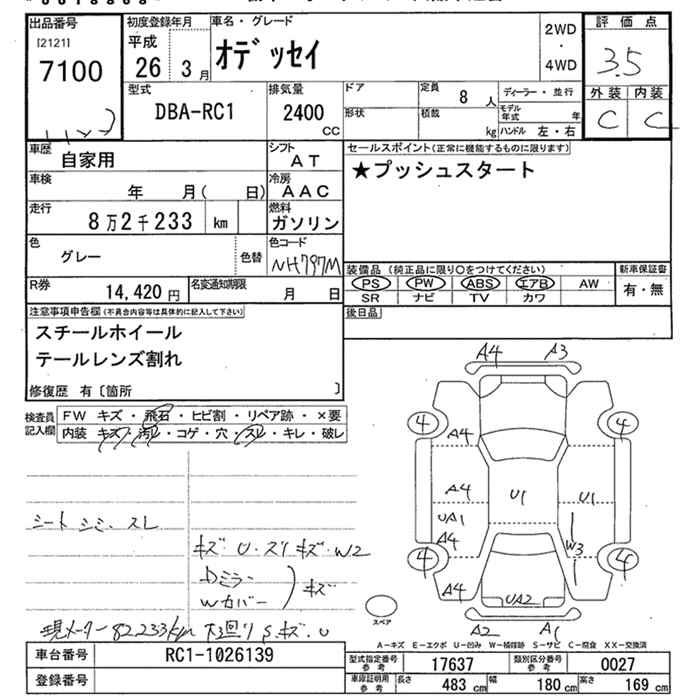 出品番号 初度登録年月 車名・グレード 2WD ・ 4WD 評価点
[2121] 7100 平成 26 3月 オデッセイ 3.5
型式 排気量 ドア 定員 8人 ディーラー・並行 外装 内装
DBA-RC1 2400 CC 形状 積載 kg モデル年式 年 C C
ハンドル 左・右
車歴 自家用 シフト AT セールスポイント(正常に機能するものに限ります)
車検 年 月( 日) 冷房 AAC ★プッシュスタート
走行 8万2千233 km 燃料 ガソリン
色 グレー 色替 色コード NH797M
装備品 (純正品に限り○をつけてください) 新車保証書
PS PW ABS エアB AW 有・無
SR ナビ TV カワ
R券 14,420円 名変通知期限 月 日
後日品
注意事項申告欄(不具合内容等は具体的に記入して下さい)
スチールホイール
テールレンズ割れ
修復歴 有〔箇所 〕
検査員記入欄 FW キズ・飛石・ヒビ割・リペア跡・×要
内装 キズ・汚レ・コゲ・穴・スレ・キレ・破レ
A4 A3
4 4
A4
A4 U1 U1
UA1
A4 W3
4 4
A4 UA2
A2 A1
スペア
シート シミ、スレ
キズ・U・スリキズ・W2
Dミラー
Wカバー キズ
現メーター82,233km 下回りS.キズ.U
A-キズ E-エクボ U-凹み W-補修跡 S-サビ C-腐食 XX-交換済
車台番号 RC1-1026139
登録番号
型式指定番号 参考 17637 類別区分番号 参考 0027
車庫証明用 参考 長さ 483cm 幅 180cm 高さ 169cm